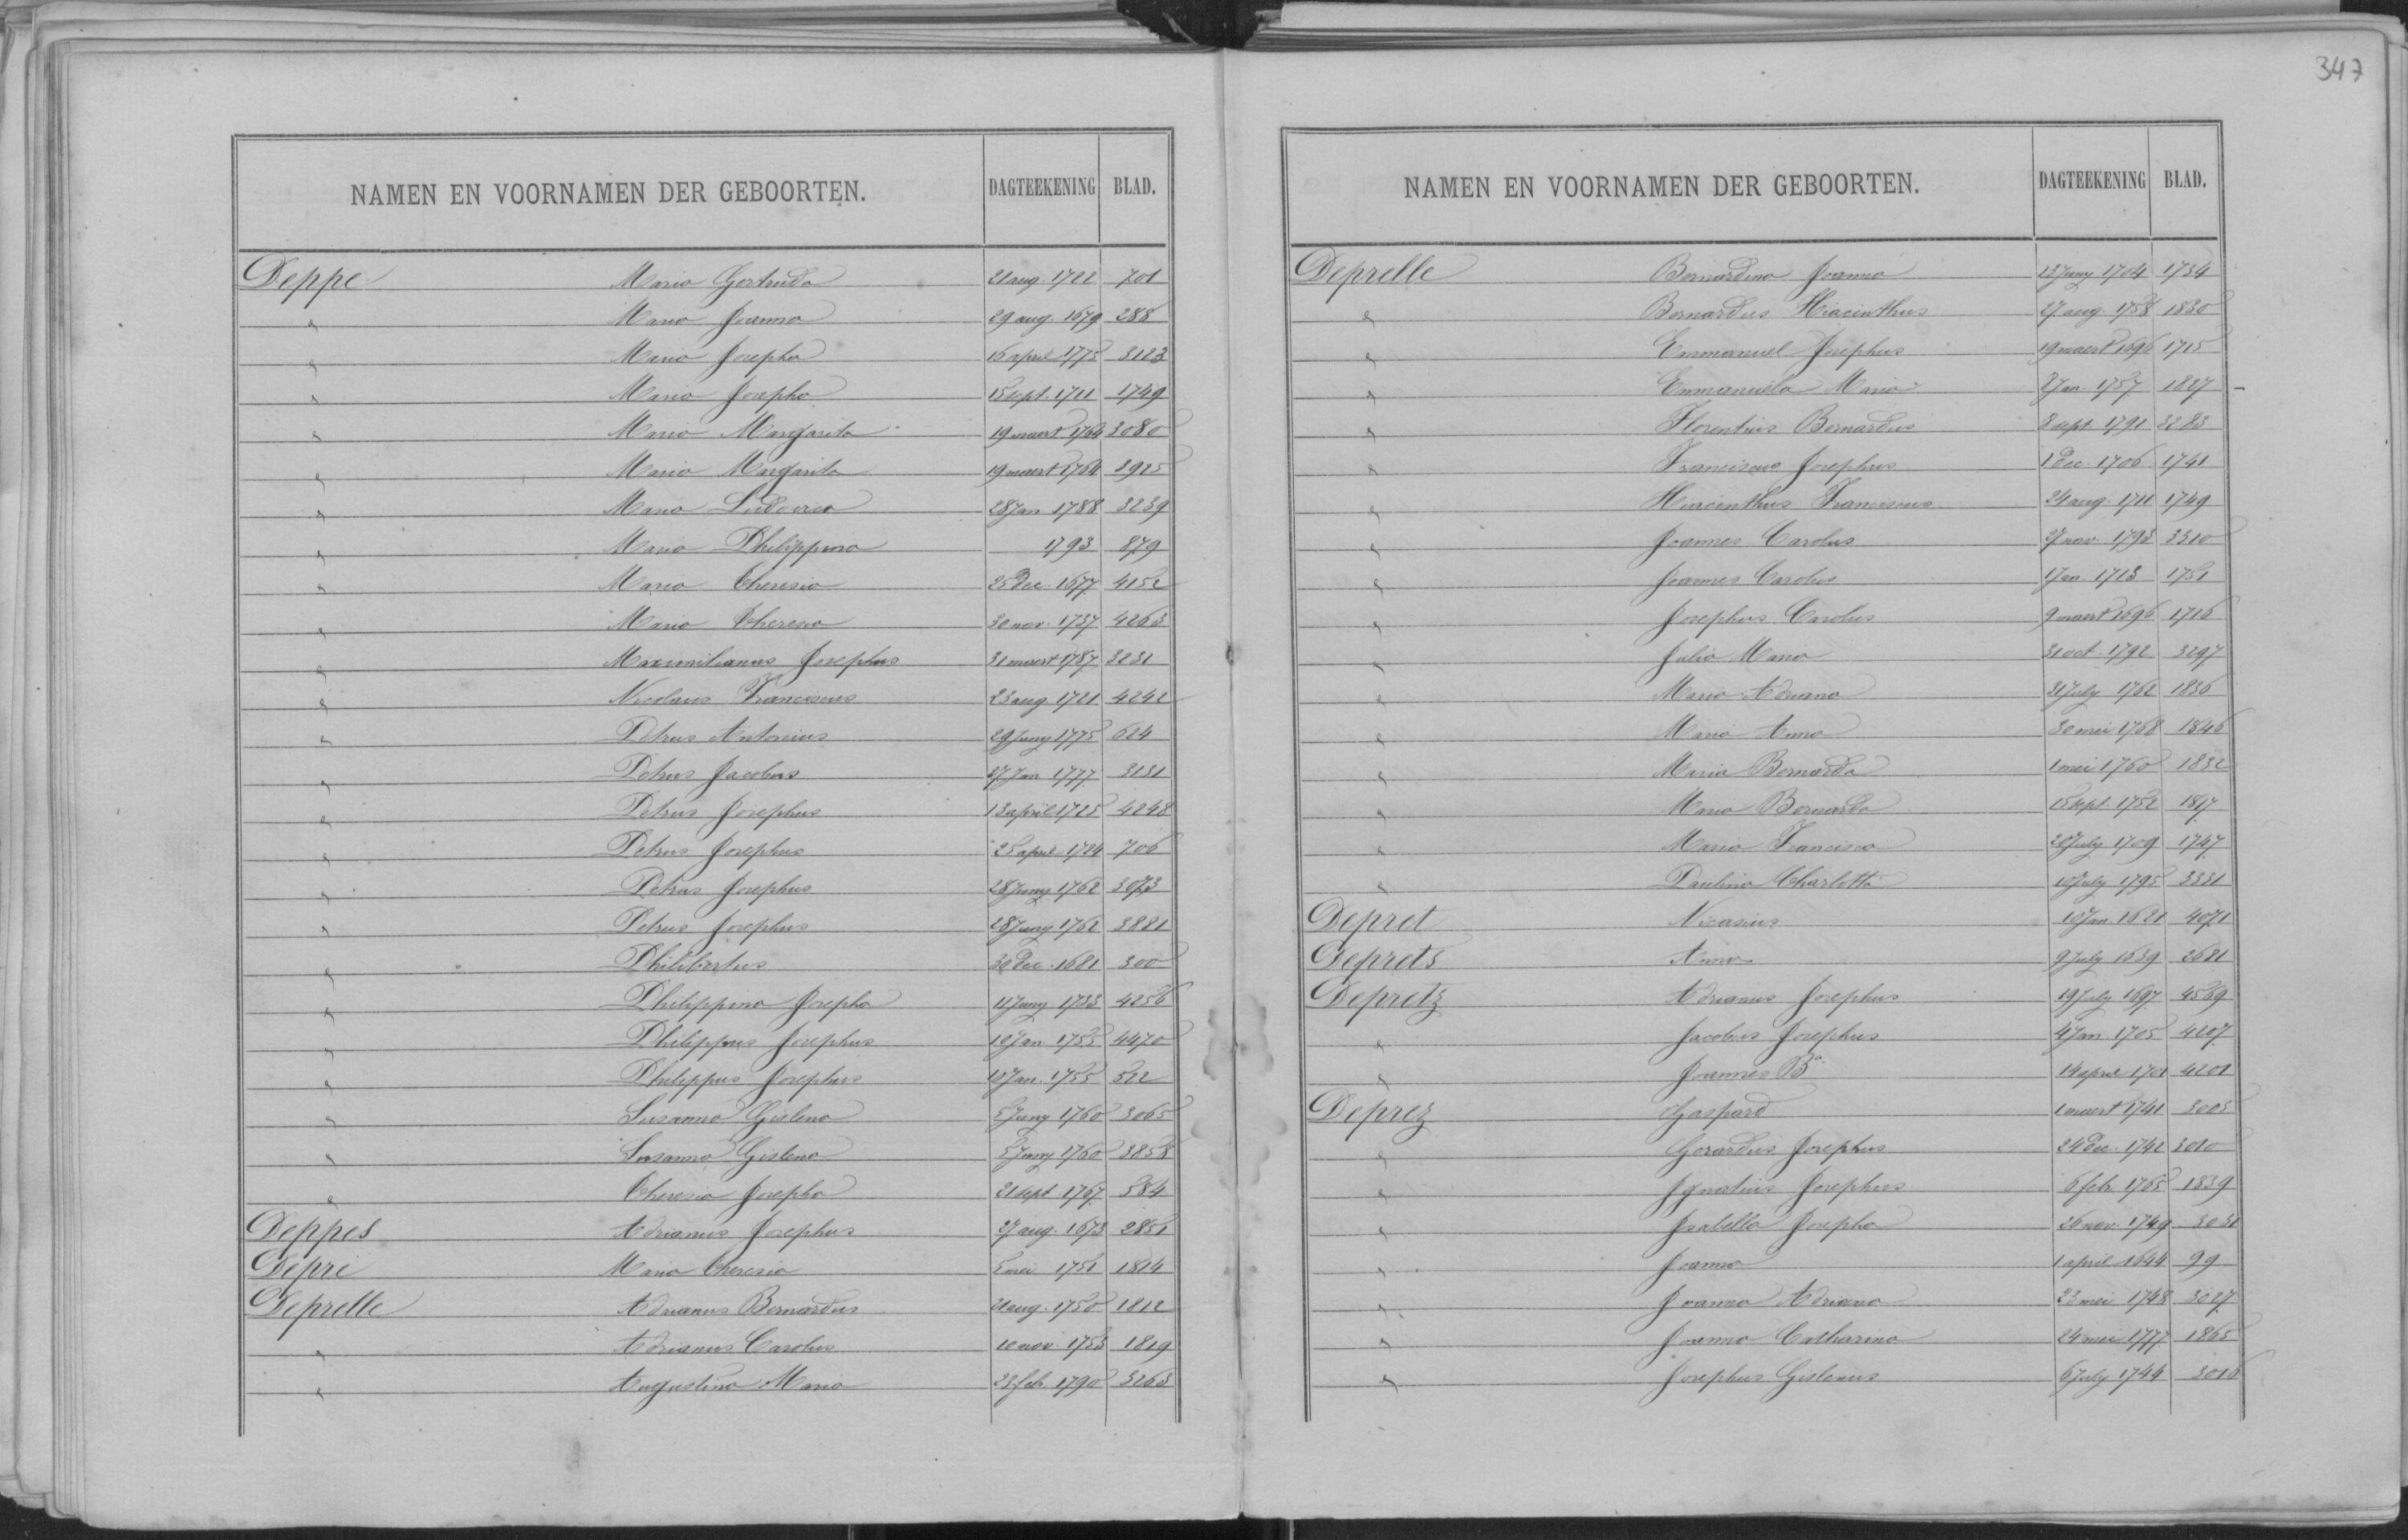 347
NAMEN EN VOORNAMEN DER GEBOORTEN. DAGTEEKENING BLAD.
Deppe Maria Gertruda 21 aug. 1722 701
" Maria Joanna 29 aug. 1679 288
" Maria Josepha 16 april 1775 3123
" Maria Josepha 15 sept. 1711 1749
" Maria Margarita 19 maert 1764 3080
" Maria Margarita 19 maert 1764 3925
" Maria Ludovica 28 Jan 1788 3239
" Maria Philippina 1793 879
" Maria Theresia 25 Dec. 1677 4152
" Maria Theresia 30 nov. 1737 4263
" Maximilianus Josephus 31 maert 1787 3231
" Nicolaus Franciscus 23 aug 1721 4242
" Petrus Antonius 29 Juny 1775 624
" Petrus Jacobus 27 Jan 1777 3131
" Petrus Josephus 13 april 1725 4248
" Petrus Josephus 25 april 1724 706
" Petrus Josephus 28 Juny 1762 3073
" Petrus Josephus 28 Juny 1762 3881
" Philibertus 30 Dec. 1681 300
" Philippina Josepha 11 Juny 1733 4256
" Philippus Josephus 10 Jan 1755 4470
" Philippus Josephus 10 Jan. 1755 522
" Susanna Gislena 5 Juny 1760 3065
" Susanna Gislena 5 Juny 1760 3858
" Theresia Josepha 21 sept 1767 584
Deppes Adrianus Josephus 27 aug. 1673 2851
Depré Maria Theresia 5 mei 1751 1814
Deprelle Adrianus Bernardus 21 aug. 1750 1812
" Adrianus Carolus 10 nov. 1753 1819
" Augustina Maria 23 feb. 1790 3263
NAMEN EN VOORNAMEN DER GEBOORTEN. DAGTEEKENING BLAD.
Deprelle Bernardina Joanna 13 Juny 1704 1734
" Bernardus Hiacinthus 27 aug. 1758 1830
" Emmanuel Josephus 19 maert 1696 1715
" Emmanuela Maria Jan. 1757 1827
" Florentius Bernardus 8 sept. 1791 3283
" Franciscus Josephus 1 Dec. 1706 1741
" Hiacinthus Franciscus 24 aug. 1711 1749
" Joannes Carolus 27 nov. 1793 3310
" Joannes Carolus 1 Jan. 1713 1751
" Josephus Carolus 9 maert 1696 1716
" Julia Maria 31 oct. 1792 3297
" Maria Adriana 31 July 1762 1836
" Maria Anna 30 mei 1768 1846
" Maria Bernarda 1 mei 1760 1832
" Maria Bernarda 15 sept. 1752 1817
" Maria Francisca 20 July 1709 1747
" Paulina Charlotta 10 July 1795 3331
Depret Nicasius 10 Jan. 1621 4071
Deprets Anna 9 July 1639 2681
Depretz Adrianus Josephus 19 July 1697 4569
" Jacobus Josephus 4 Jan. 1705 4207
" Joannes Bª 14 april 1701 4201
Deprez Gaspard 1 maert 1741 3005
" Gerardus Josephus 24 Dec. 1742 3010
" Ignatius Josephus 6 feb. 1765 1839
" Isabella Josepha 26 nov. 1749 3031
" Joanna 1 april 1644 99
" Joanna Adriana 23 mei 1748 3027
" Joanna Catharina 24 mei 1777 1865
" Josephus Gislenus 6 July 1744 3016